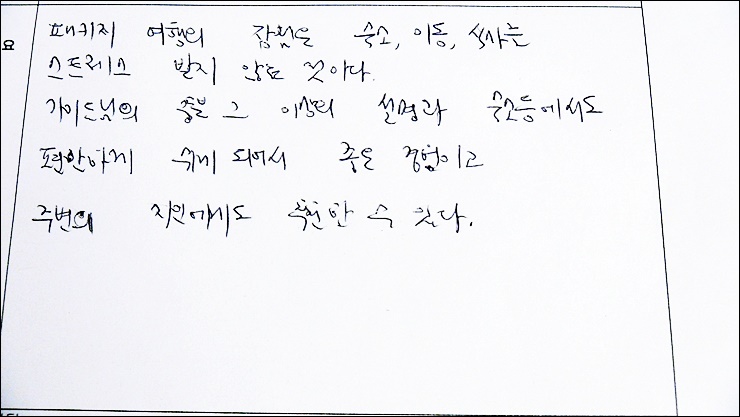 요
패키지 여행의 장점은 숙소, 이동, 식사는
스트레스 받지 않는 것이다.
가이드님의 충분 그 이상의 설명과 숙소등에서도
편안하게 쉬게 되어서 좋은 경험이고
주변의 지인에게도 추천할 수 있다.